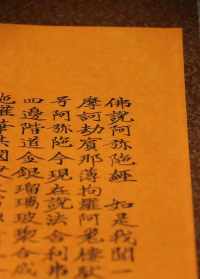 佛說阿弥陁經　如是我聞一
摩訶劫賓那薄拘羅阿㝹樓馱
号阿弥陁今現在說法舍利弗
四邊階道金銀瑠璃玻梨合成